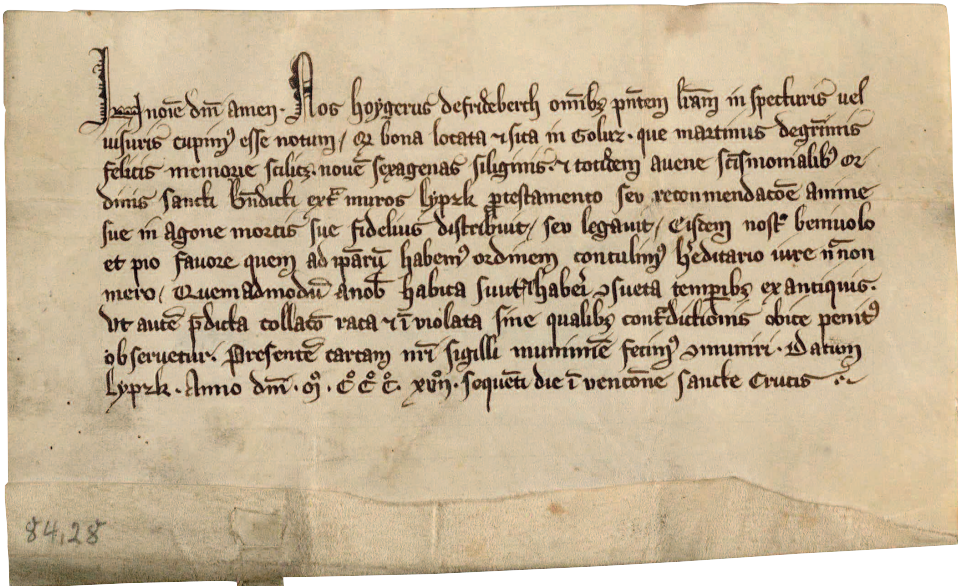 In noīe dnī amen. Nos hoygerus de frideberch omībꝫ pn̄tem lr̄am inspecturis vel
visuris cupimꝰ esse notum / qr bona locata ⁊ sita in Golucz. que martinus de grīmis
felicis memorie scilicꝫ. novē sexagenas siliginis. ⁊ totidem avene sctīsmonialibꝰ or-
dinis sancti bn̄dicti ext̄ muros lypzk ꝑ testamento seu recommendacōe anime
sue in agone mortis sue fidelius distribuit / seu legavit / Eisdem nostꝰ benivolo
et pio favore quem ad ip̄arū habemꝰ ordinem contulimꝰ hꝰeditario iure nr̄a non
mero / Quemadmodū a nob̄ habita sunt ⁊ haberi ꝯsueta temꝑibꝫ ex antiquis.
Vt autē p̄dicta collatō rata ⁊ īviolata sine qualibꝫ cont̄dictionis obice penitꝰ
observetur. Presentē cartam nr̄i sigilli munimīe fecimꝰ ꝯmuniri. Datum
lypzk. Anno dnī. mͦ. cͦcͦcͦ. xvͦiiͦ. sequēti die īvencōne sancte Crucis
84,28